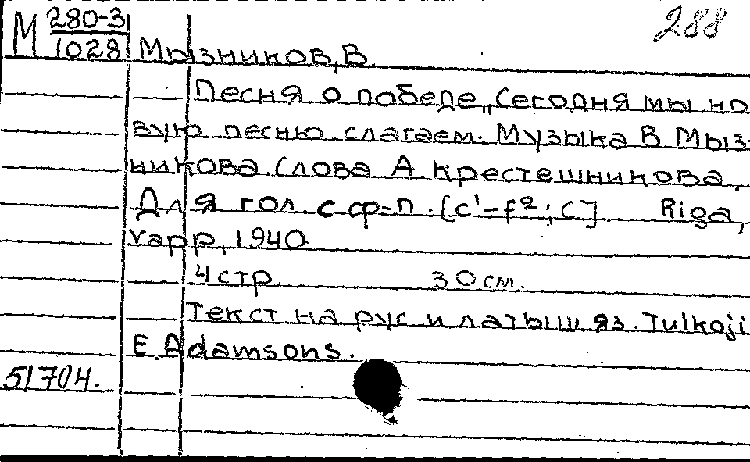 288
М 280-3
1028 Мызников, В.
Песня о победе „Сегодня мы но
вую песню слагаем. Музыка В Мыз-
никова Слова А Крестешникова,
Для гол с ф-п. [c¹-f²; C] Riga,
vapp, 1940
4 стр 30 см.
Текст на рус и латыш яз. Tulkoji
E. Adamsons.
51704.